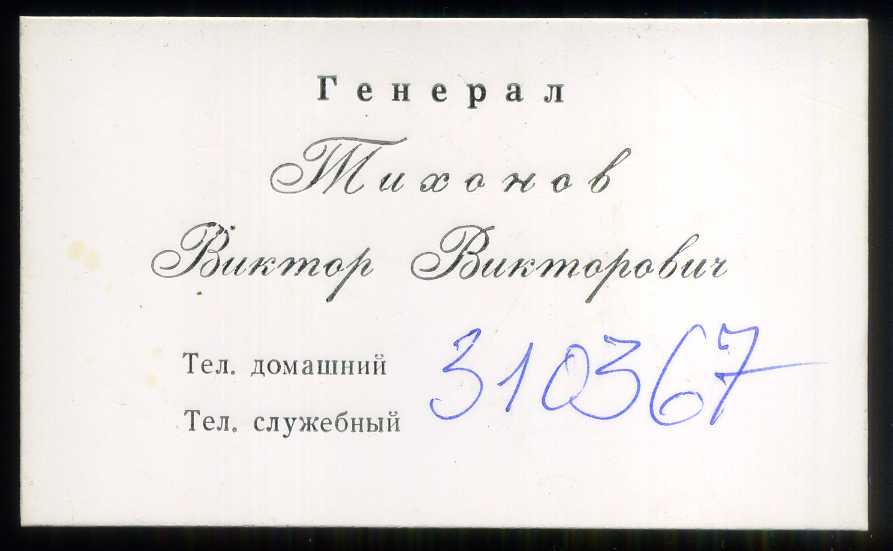 Генерал
Тихонов
Виктор Викторович
Тел. домашний
310367
Тел. служебный